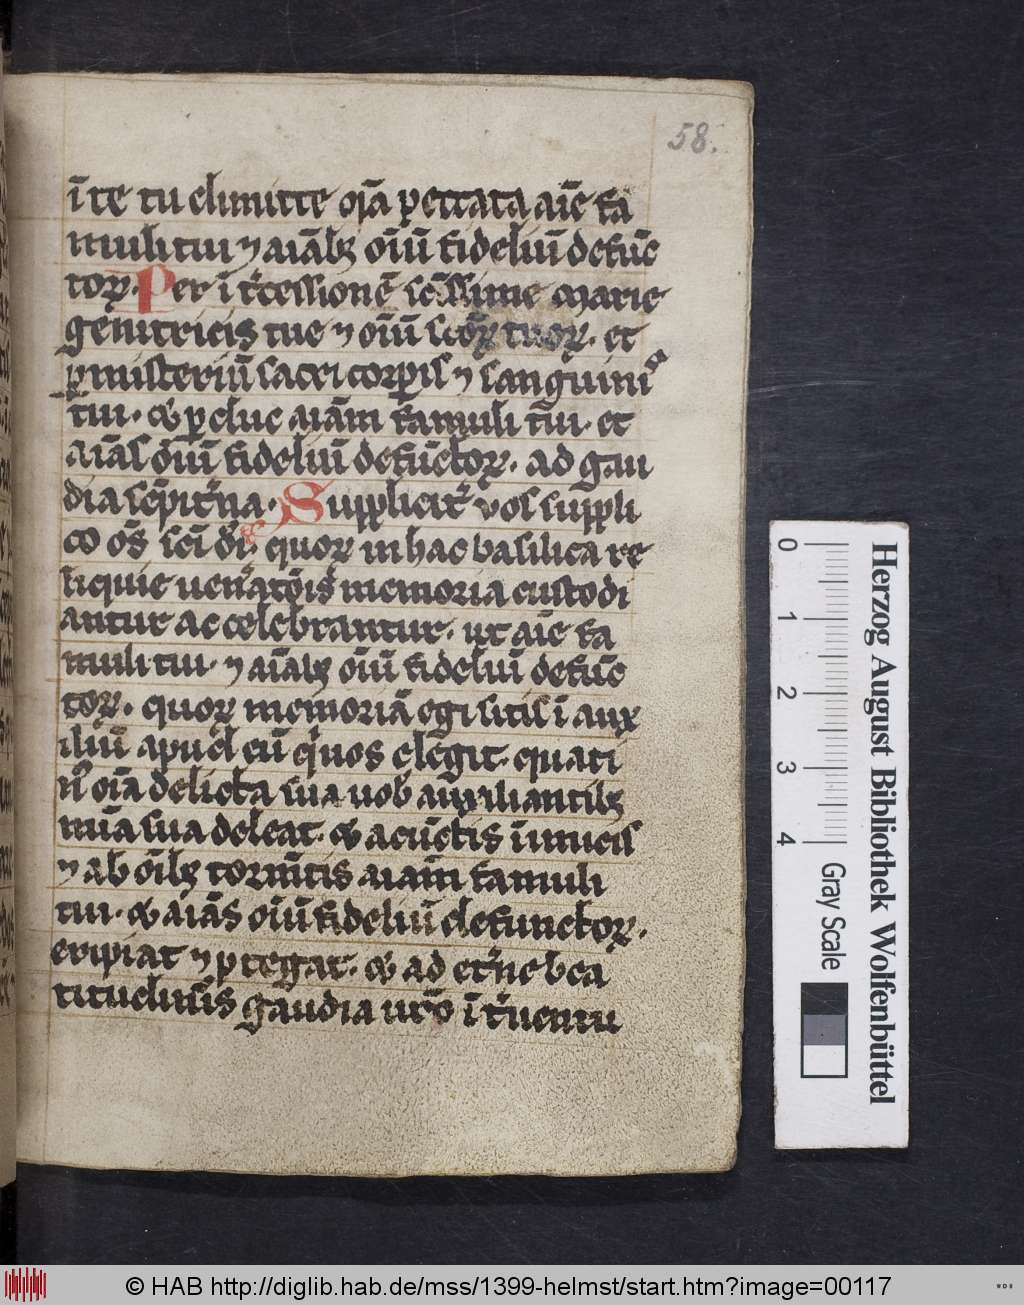 58.
ī te tu dimitte oīa peccata aīe fa
muli tui ⁊ aīabꝫ oīuꝫ fideliū defūc
toꝝ. Per ītcessionē scīssime marie
genitricis tue ⁊ oīū sctōꝝ tuoꝝ. et
ꝑ misteriū sacri corꝑis ⁊ sanguinis
tui. ⁊ ꝑduc aīam famuli tui. et
aīas oīuꝫ fideliū defūctoꝝ. ad gau
dia sēpit̄na. Supplicit̄ vos suppli
co oēs scī dei quoꝝ in hac basilica re
liquie ueneratōis memoria custodi
antur ac celebrantur. ut aīe fa
muli tui. ⁊ aīabꝫ oīū fideliū defūc
toꝝ. quoꝝ memoriā egi sitis ī aux
iliū apud eū qui uos elegit. quati
nꝰ oīa delicta sua uob auxiliantibꝫ
mīa sua deleat. ⁊ a cūctis īimicis
⁊ ab oībꝫ tormētis aīam famuli
tui. ⁊ aīas oīuꝫ fideliū defunctoꝝ.
eripiat ⁊ ꝑtegat. ⁊ ad et̄ne bea
titudinis gaudia uro īt̄uentu
0 1 2 3 4
Herzog August Bibliothek Wolfenbüttel
Gray Scale
© HAB http://diglib.hab.de/mss/1399-helmst/start.htm?image=00117